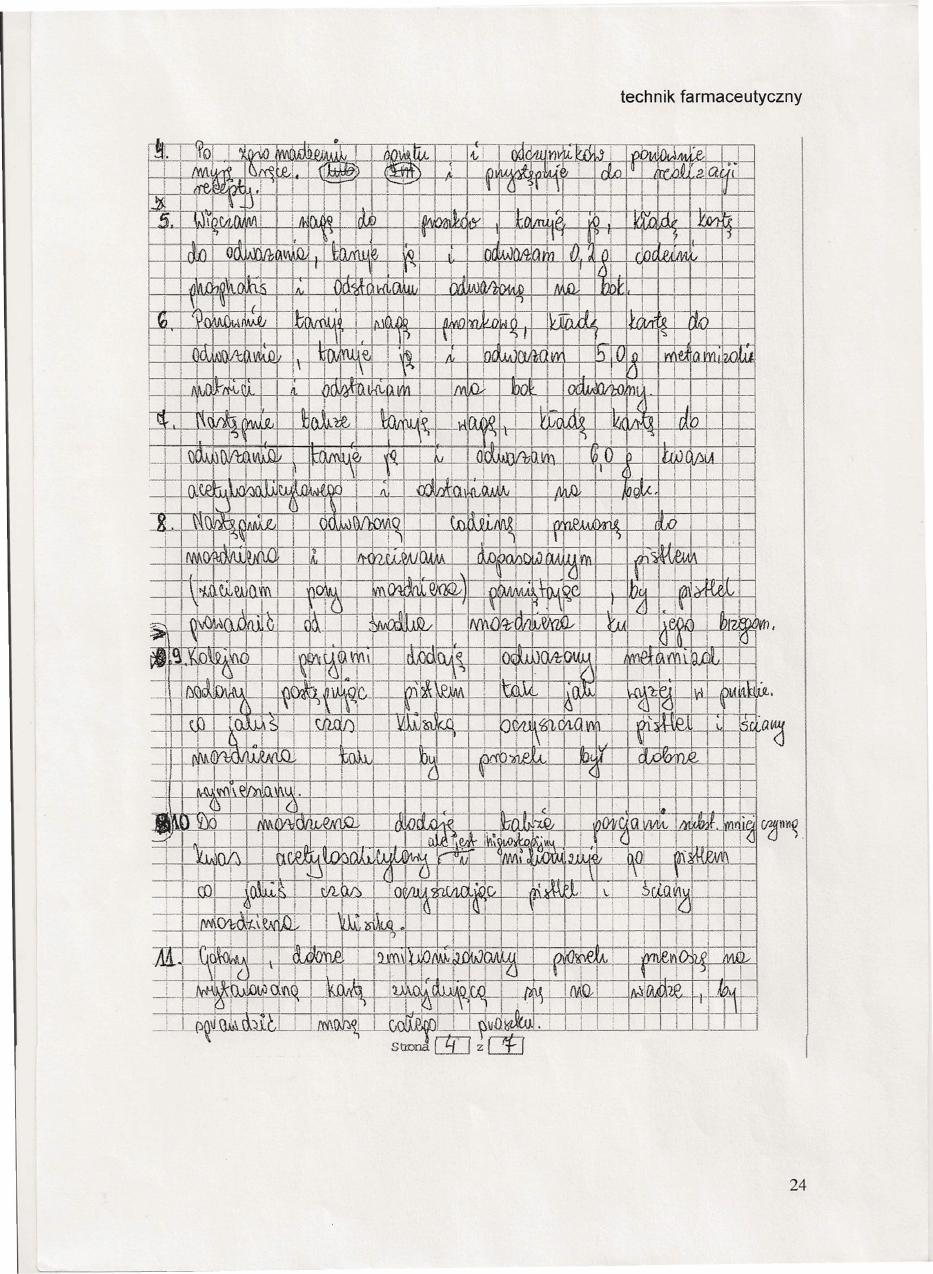 technik farmaceutyczny
4. Po zgromadzeniu sprzętu i odczynników ponownie
myję ręce. i przystępuję do realizacji
recepty.
5. Włączam wagę do proszków, taruję ją, kładę kartę
do odważania, taruje ją i odważam 0,2g codeini
phosphatis i odstawiam odważoną na bok.
6. Ponownie taruję wagę proszkową, kładę kartę do
odważania, taruje ją i odważam 5,0g metamizoli
natrici i odstawiam na bok odważony.
7. Następnie także taruję wagę, kładę kartę do
odważania, taruje ją i odważam 6,0 g kwasu
acetylosalicylowego i odstawiam na bok.
8. Następnie odważoną codeinę przenoszę do
moździerza i rozcieram dopasowanym pistlem
(zacieram pory moździerza) pamiętając, by pistlel
prowadzić od środka moździerza ku jego brzegom.
9. Kolejno porcjami dodaję odważony metamizol
sodowy postępując pistlem tak jak wyżej w punkcie.
co jakiś czas kliską oczyszczam pistlel i ściany
moździerza tak by proszek był dobrze
wymieszany.
10 Do moździerza dodaję także porcjami subst. mniej czynną
ale jest higroskopijny
kwas acetylosalicylowy i mikronizuję go pistlem
co jakiś czas oczyszczając pistlel i ściany
moździerza kliską.
11. Gotowy, dobrze zmikronizowany proszek przenoszę na
wytarowaną kartę znajdującą się na wadze, by
sprawdzić masę całego proszku.
Strona 4 z 7
24